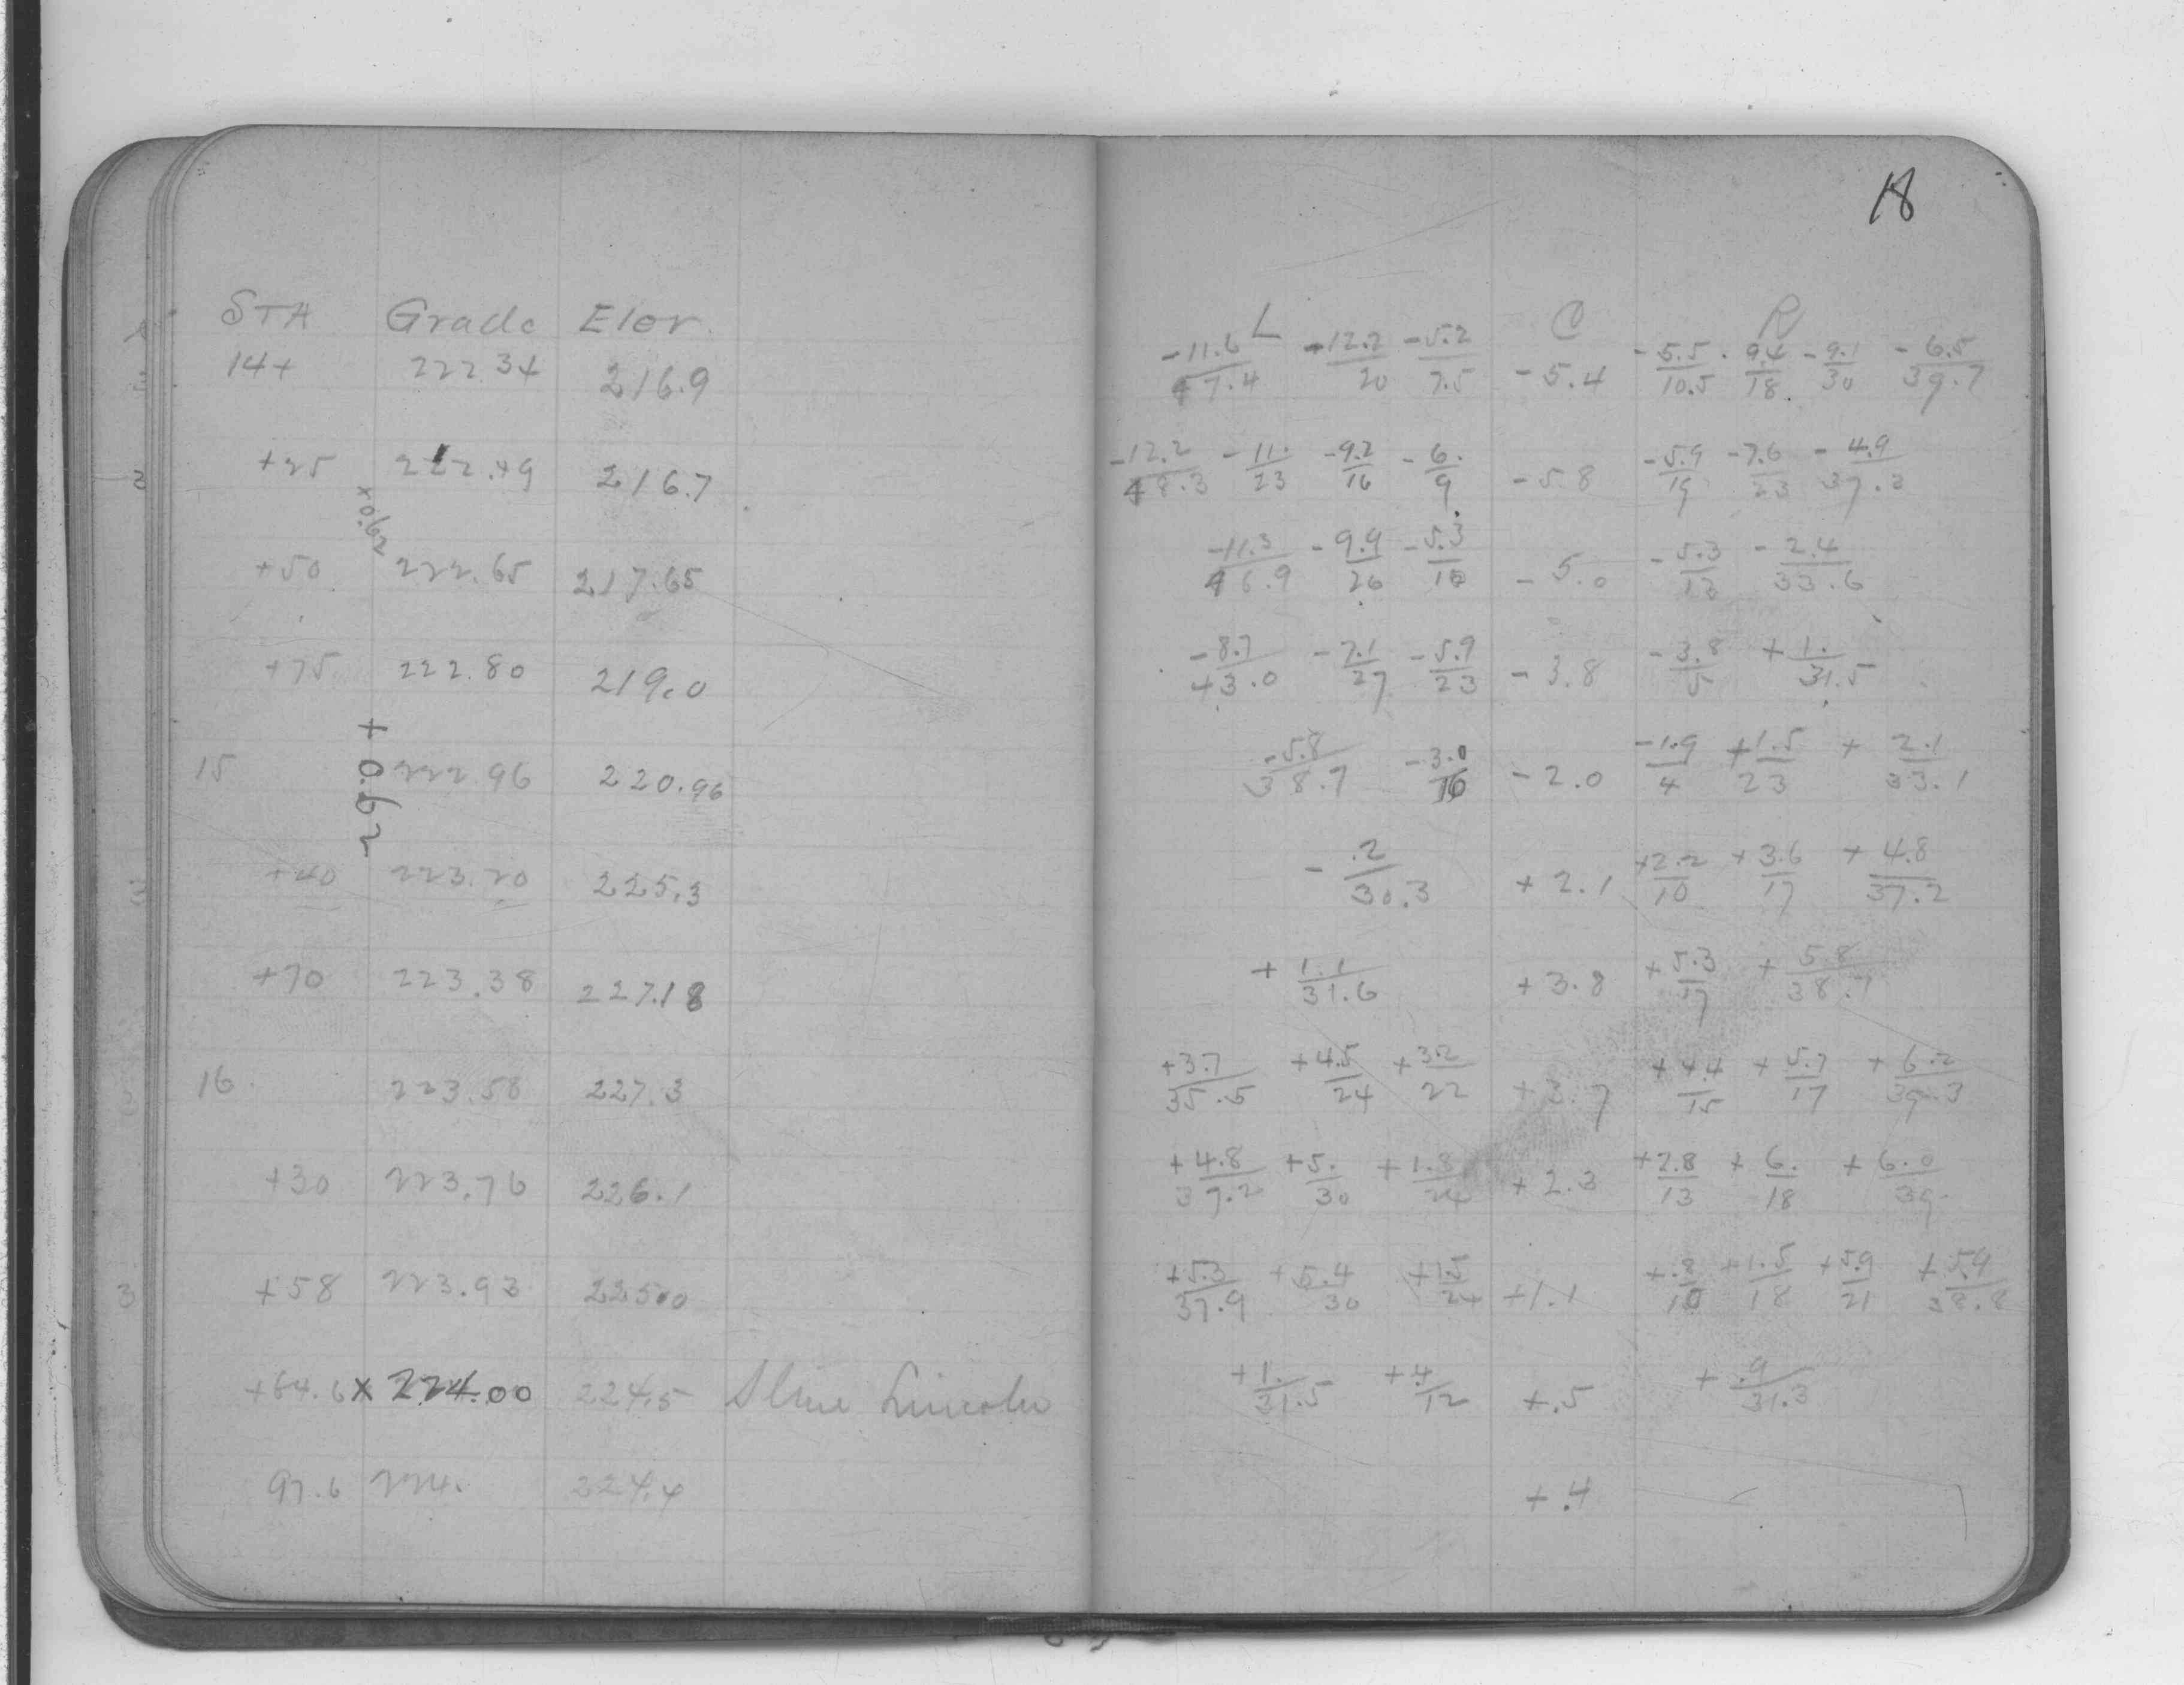 18
STA Grade Elev. L C R
14+ 222.34 216.9 -11.6/47.4 -12.2/20 -5.2/7.5 -5.4 -5.5/10.5 -9.4/18 -9.1/30 -6.5/39.7
+25 222.49 216.7 -12.2/48.3 -11./23 -9.2/16 -6./9 -5.8 -5.9/19 -7.6/23 -4.9/37.3
+0.62
+50 222.65 217.65 -11.3/46.9 -9.9/26 -5.3/10 -5.0 -5.3/12 -2.4/33.6
+75 222.80 219.0 -8.7/43.0 -7.1/27 -5.9/23 -3.8 -3.8/5 +1./31.5
+0.62
15 222.96 220.96 -5.8/38.7 -3.0/16 -2.0 -1.9/4 +1.5/23 +2.1/33.1
+40 223.20 225.3 -.2/30.3 +2.1 +2.2/10 +3.6/17 +4.8/37.2
+70 223.38 227.18 +1.1/31.6 +3.8 +5.3/17 +5.8/38.7
16 223.58 227.3 +3.7/35.5 +4.5/24 +3.2/22 +3.7 +4.4/15 +5.7/17 +6.2/39.3
+30 223.76 226.1 +4.8/37.2 +5./30 +1.8/24 +2.3 +2.8/13 +6./18 +6.0/39
+58 223.93 225.0 +5.3/37.9 +5.4/30 +1.5/24 +1.1 +.8/10 +1.5/18 +5.9/21 +5.9/38.8
+64.6 x 224.00 224.5 Lincoln +1./31.5 +.4/12 +.5 +.9/31.3
97.6 224. 224.4 +.4